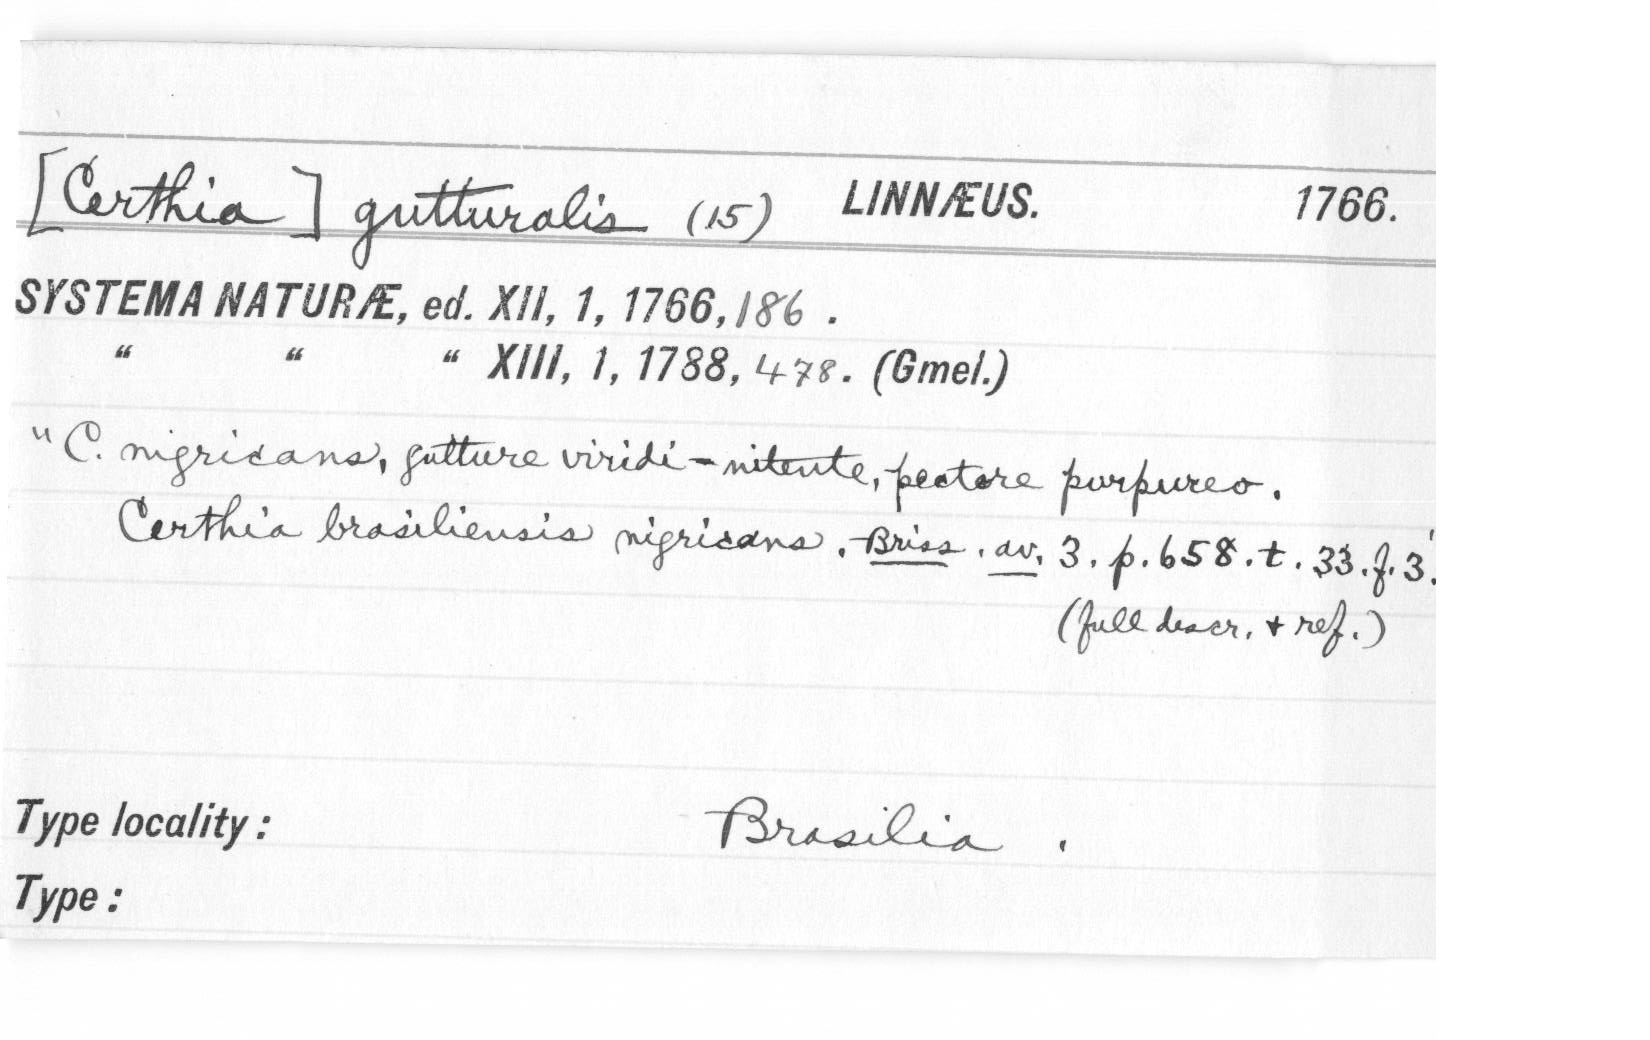 [Certhia] gutturalis (15) LINNÆUS. 1766.
SYSTEMA NATURÆ, ed. XII, 1, 1766, 186.
“ “ “ XIII, 1, 1788, 478. (Gmel.)
"C. nigricans, gutture viridi-nitente, pectore purpureo.
Certhia brasiliensis nigricans. Briss. av. 3. p. 658. t. 33. f. 3.'
(full descr. + ref.)
Type locality: Brasilia.
Type: